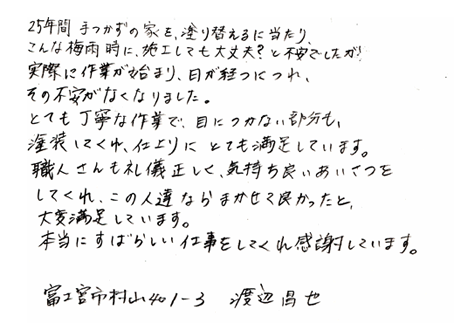 25年間手つかずの家を、塗り替えるに当たり、
こんな梅雨時に、施工しても大丈夫?と不安でしたが、
実際に作業が始まり、日が経つにつれ、
その不安がなくなりました。
とても丁寧な作業で、目につかない部分も、
塗装してくれ、仕上りにとても満足しています。
職人さんも礼儀正しく、気持ち良いあいさつを
してくれ、この人達ならまかせて良かったと、
大変満足しています。
本当にすばらしい仕事をしてくれ感謝しています。
富士宮市村山401-3 渡辺昌也